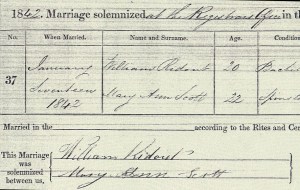 1842. Marriage solemnized at the Register Office in the
No. When Married. Name and Surname. Age. Condition
37 January William Ridout 20 Bachel
Seventeen Mary Ann Scott 22 Spinste
1842
Married in the according to the Rites and Cer
This Marriage was solemnized between us, William Ridout
Mary Ann Scott